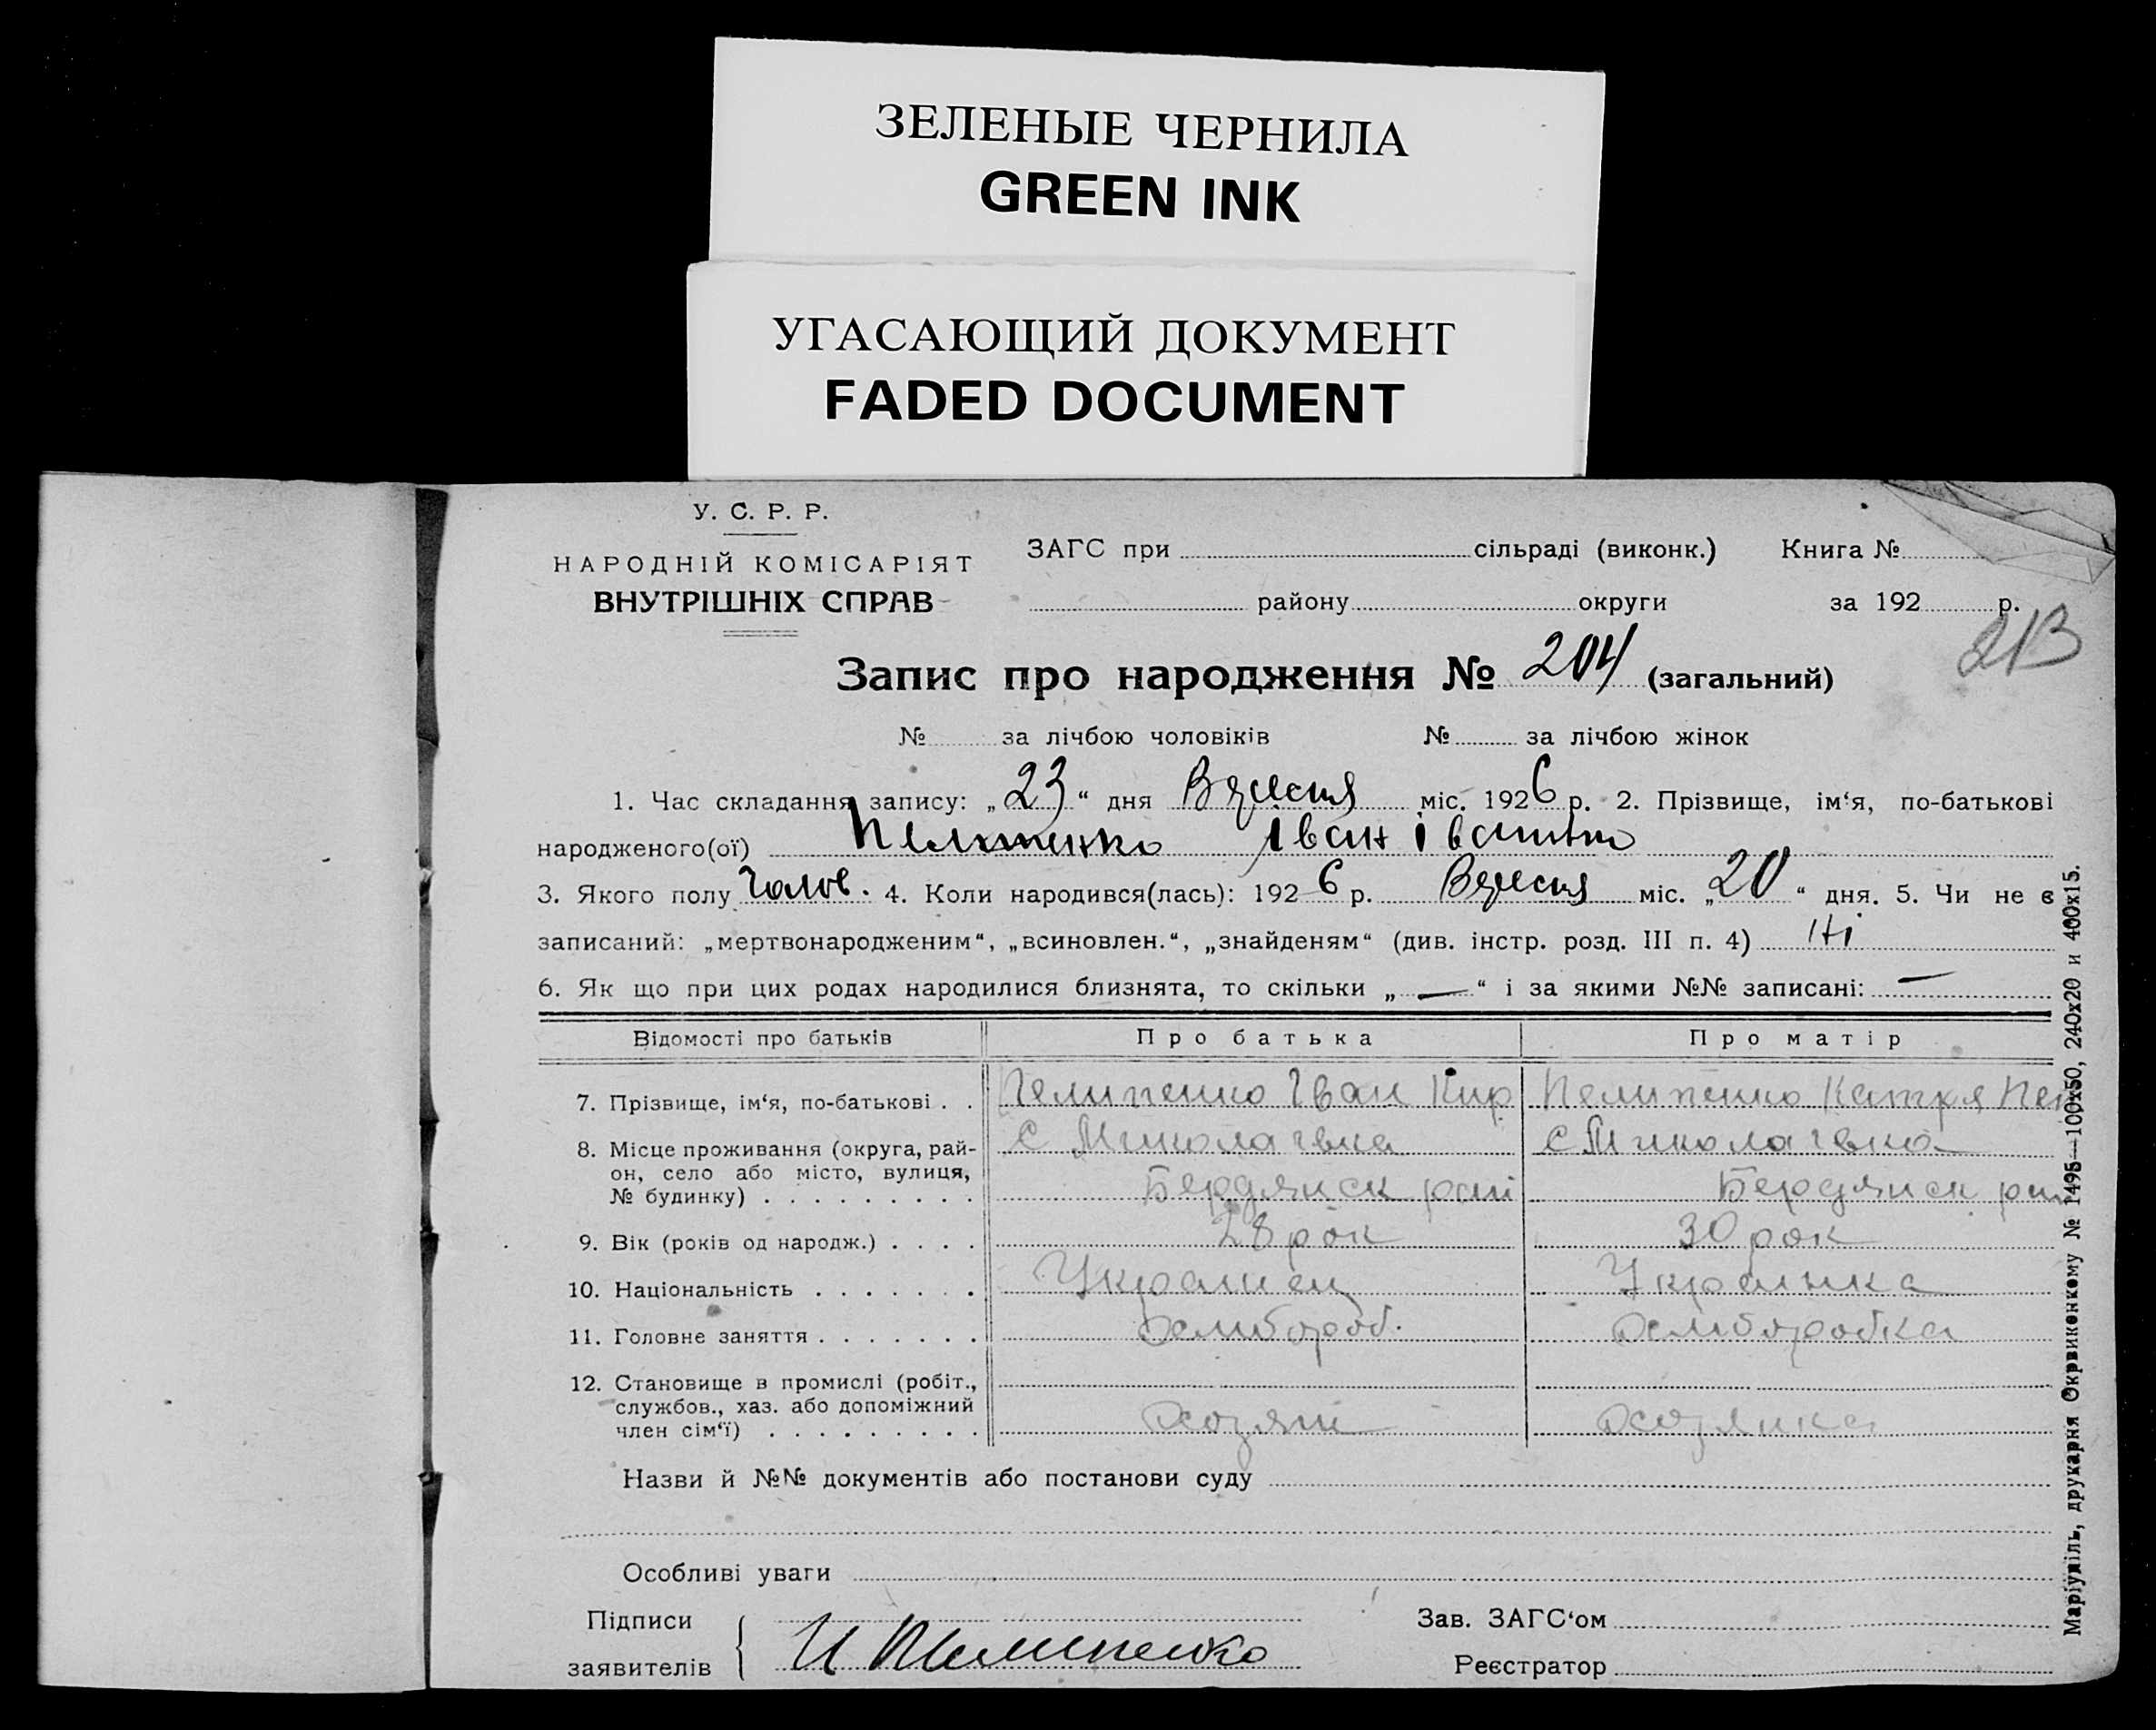 ЗЕЛЕНЫЕ ЧЕРНИЛА
GREEN INK
УГАСАЮЩИЙ ДОКУМЕНТ
FADED DOCUMENT
У. С. Р. Р.
НАРОДНІЙ КОМІСАРІЯТ
ВНУТРІШНІХ СПРАВ
ЗАГС при сільраді (виконк.) Книга №
району округи за 192 р.
213
Запис про народження № 204 (загальний)
№ за лічбою чоловіків № за лічбою жінок
1. Час складання запису: „23“ дня Вересня міс. 1926 р. 2. Прізвище, ім‘я, по-батькові
народженого(ої) Пелипенко Іван Іванов
3. Якого полу чолов. 4. Коли народився(лась): 1926 р. Вересня міс. „20“ дня. 5. Чи не є
записаний: „мертвонародженим“, „всиновлен.“, „знайденям“ (див. інстр. розд. III п. 4) Ні
6. Як що при цих родах народилися близнята, то скільки „—“ і за якими №№ записані: —
Відомості про батьків Про батька Про матір
7. Прізвище, ім‘я, по-батькові . . Пелипенко Іван Кир Пелипенко Катря
8. Місце проживання (округа, рай- с Миколаівка с Миколаівка
он, село або місто, вулиця,
№ будинку) . . . . . . . . . Бердянск рай Бердянск рай
9. Вік (років од народж.) . . . . 28 рок 30 рок
10. Національність . . . . . . . Украінец Украінка
11. Головне заняття . . . . . . . Хлибороб. Хлиборобка
12. Становище в промислі (робіт.,
службов., хаз. або допоміжний
член сім‘ї) . . . . . . . . . Хозяін Хозяика
Назви й №№ документів або постанови суду
Особливі уваги
Підписи Зав. ЗАГС‘ом
заявителів И Пелипенко Реєстратор
Маріупіль, друкарня Окрвиконкому № 1495—100х50, 240х20 и 400х15.